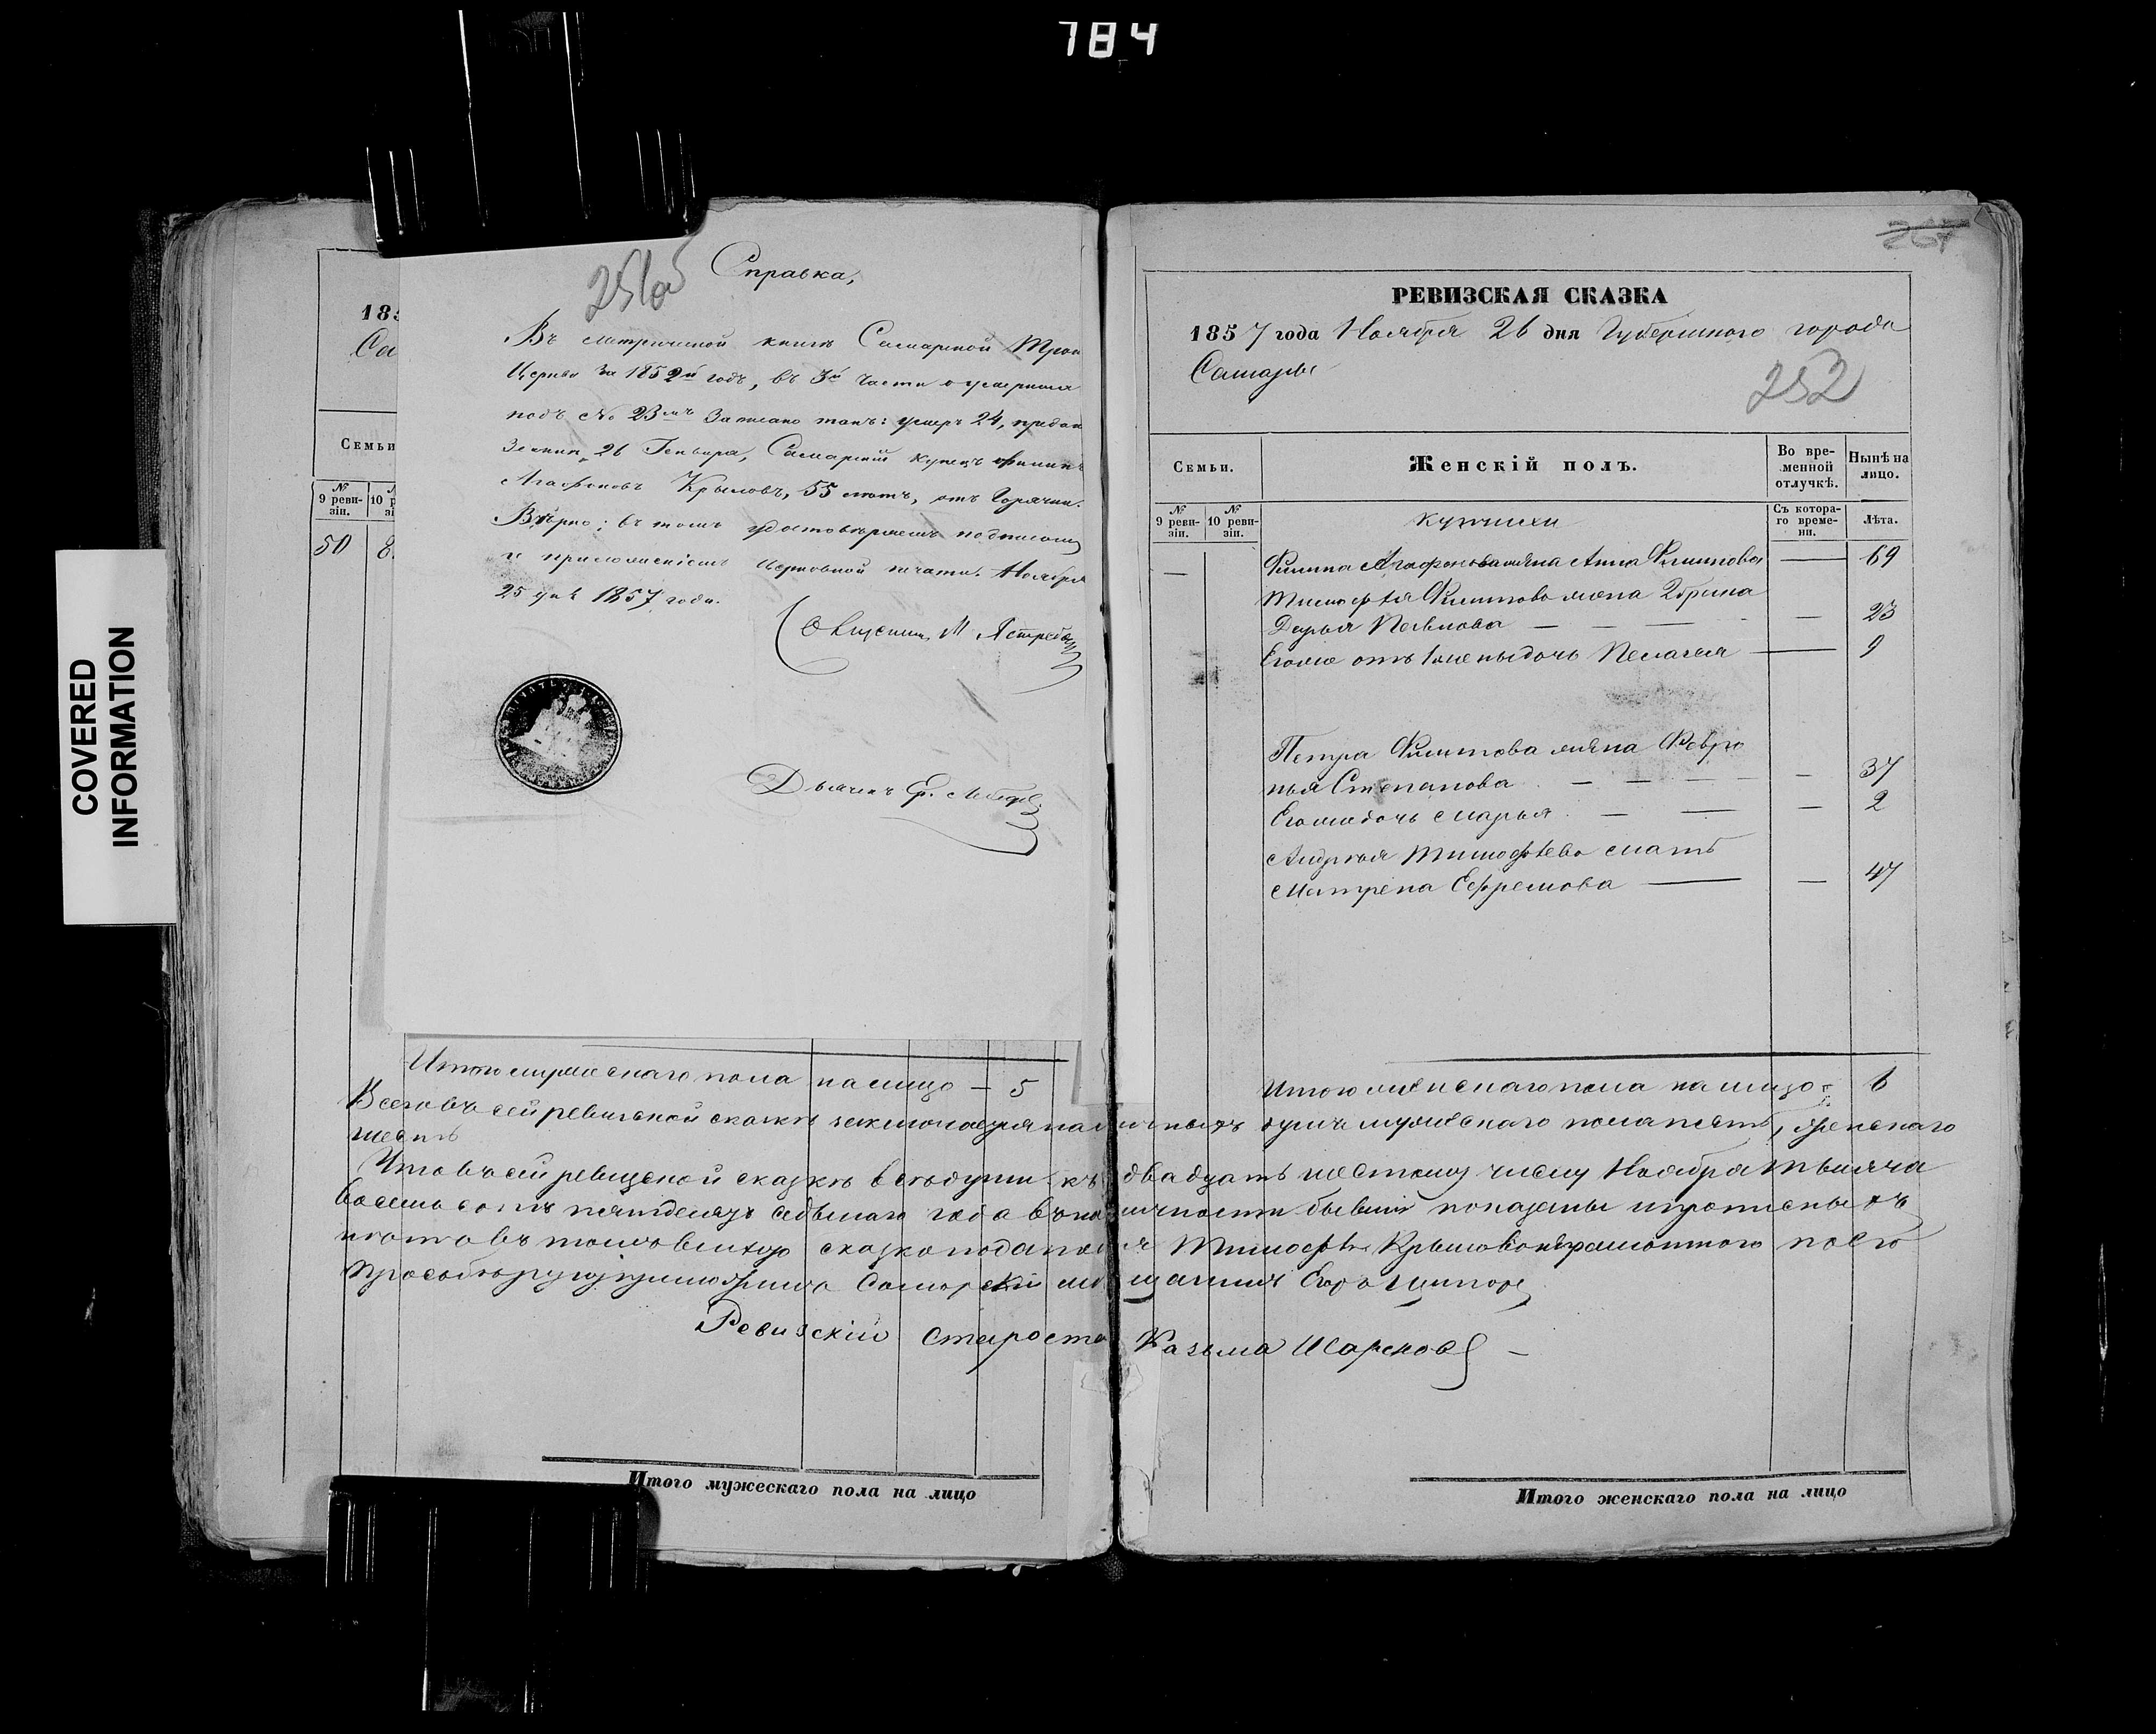 784
COVERED
INFORMATION
185
Са
Семьи
№ 9 реви-зіи.
10 р
50
8
251об
Справка,
Въ метрической книге Самарской Трои
Церкви за 1852й годъ, въ 3й части о умерших
подъ № 23мъ записано такъ: умеръ 24, предан
земли 26 Генваря, Самарскій купецъ Филипъ
Агафоновъ Крыловъ, 55 летъ, отъ горячки.
Вѣрно; въ томъ удостовѣряемъ подписом
и приложеніемъ церковной печати. Ноября
25 дня 1857 года.
Священник М Ястребов
Дьячекъ
Итого мужескаго пола на лицо — 5
267
РЕВИЗСКАЯ СКАЗКА
1857 года Ноября 26 дня Губернского города
Самары
252
Семьи.
Женскій полъ.
Во вре-менной отлучкѣ.
Нынѣ на лицо.
№ 9 реви-зіи.
№ 10 реви-зіи.
купчихи
Съ котора-го време-ни.
Лѣта.
Филипа Агафонова жена Анна Филипова — 69
Тимофѣя Филипова жена 2 брака
Дарья Павлова — — — — 23
Егоже отъ 1 жены дочь Пелагея — 9
Петра Филипова жена Февро
нья Степанова — — — — 37
Егоже дочь Марья — — — 2
Андрея Тимофѣева мать
Матрена Ефремова — — 47
Итого женскаго пола на лицо 6
Всего въ сей ревизской сказкѣ заключается наличныхъ душъ мужескаго пола пять, женскаго
шесть
Что въ сей ревизской сказкѣ все души къ двадцать шестому числу Ноября тысяча
восемь сотъ пятдесяц седьмаго года въ наличности бывшія показаны и прописныхъ
нетъ въ томъ сказкоподатель Тимофѣй Крыловъ неграмотного по его
прозьбѣ руку приложилъ Самарскій мещанинъ Егоръ
Ревизскій староста Казьма
Итого мужескаго пола на лицо
Итого женскаго пола на лицо